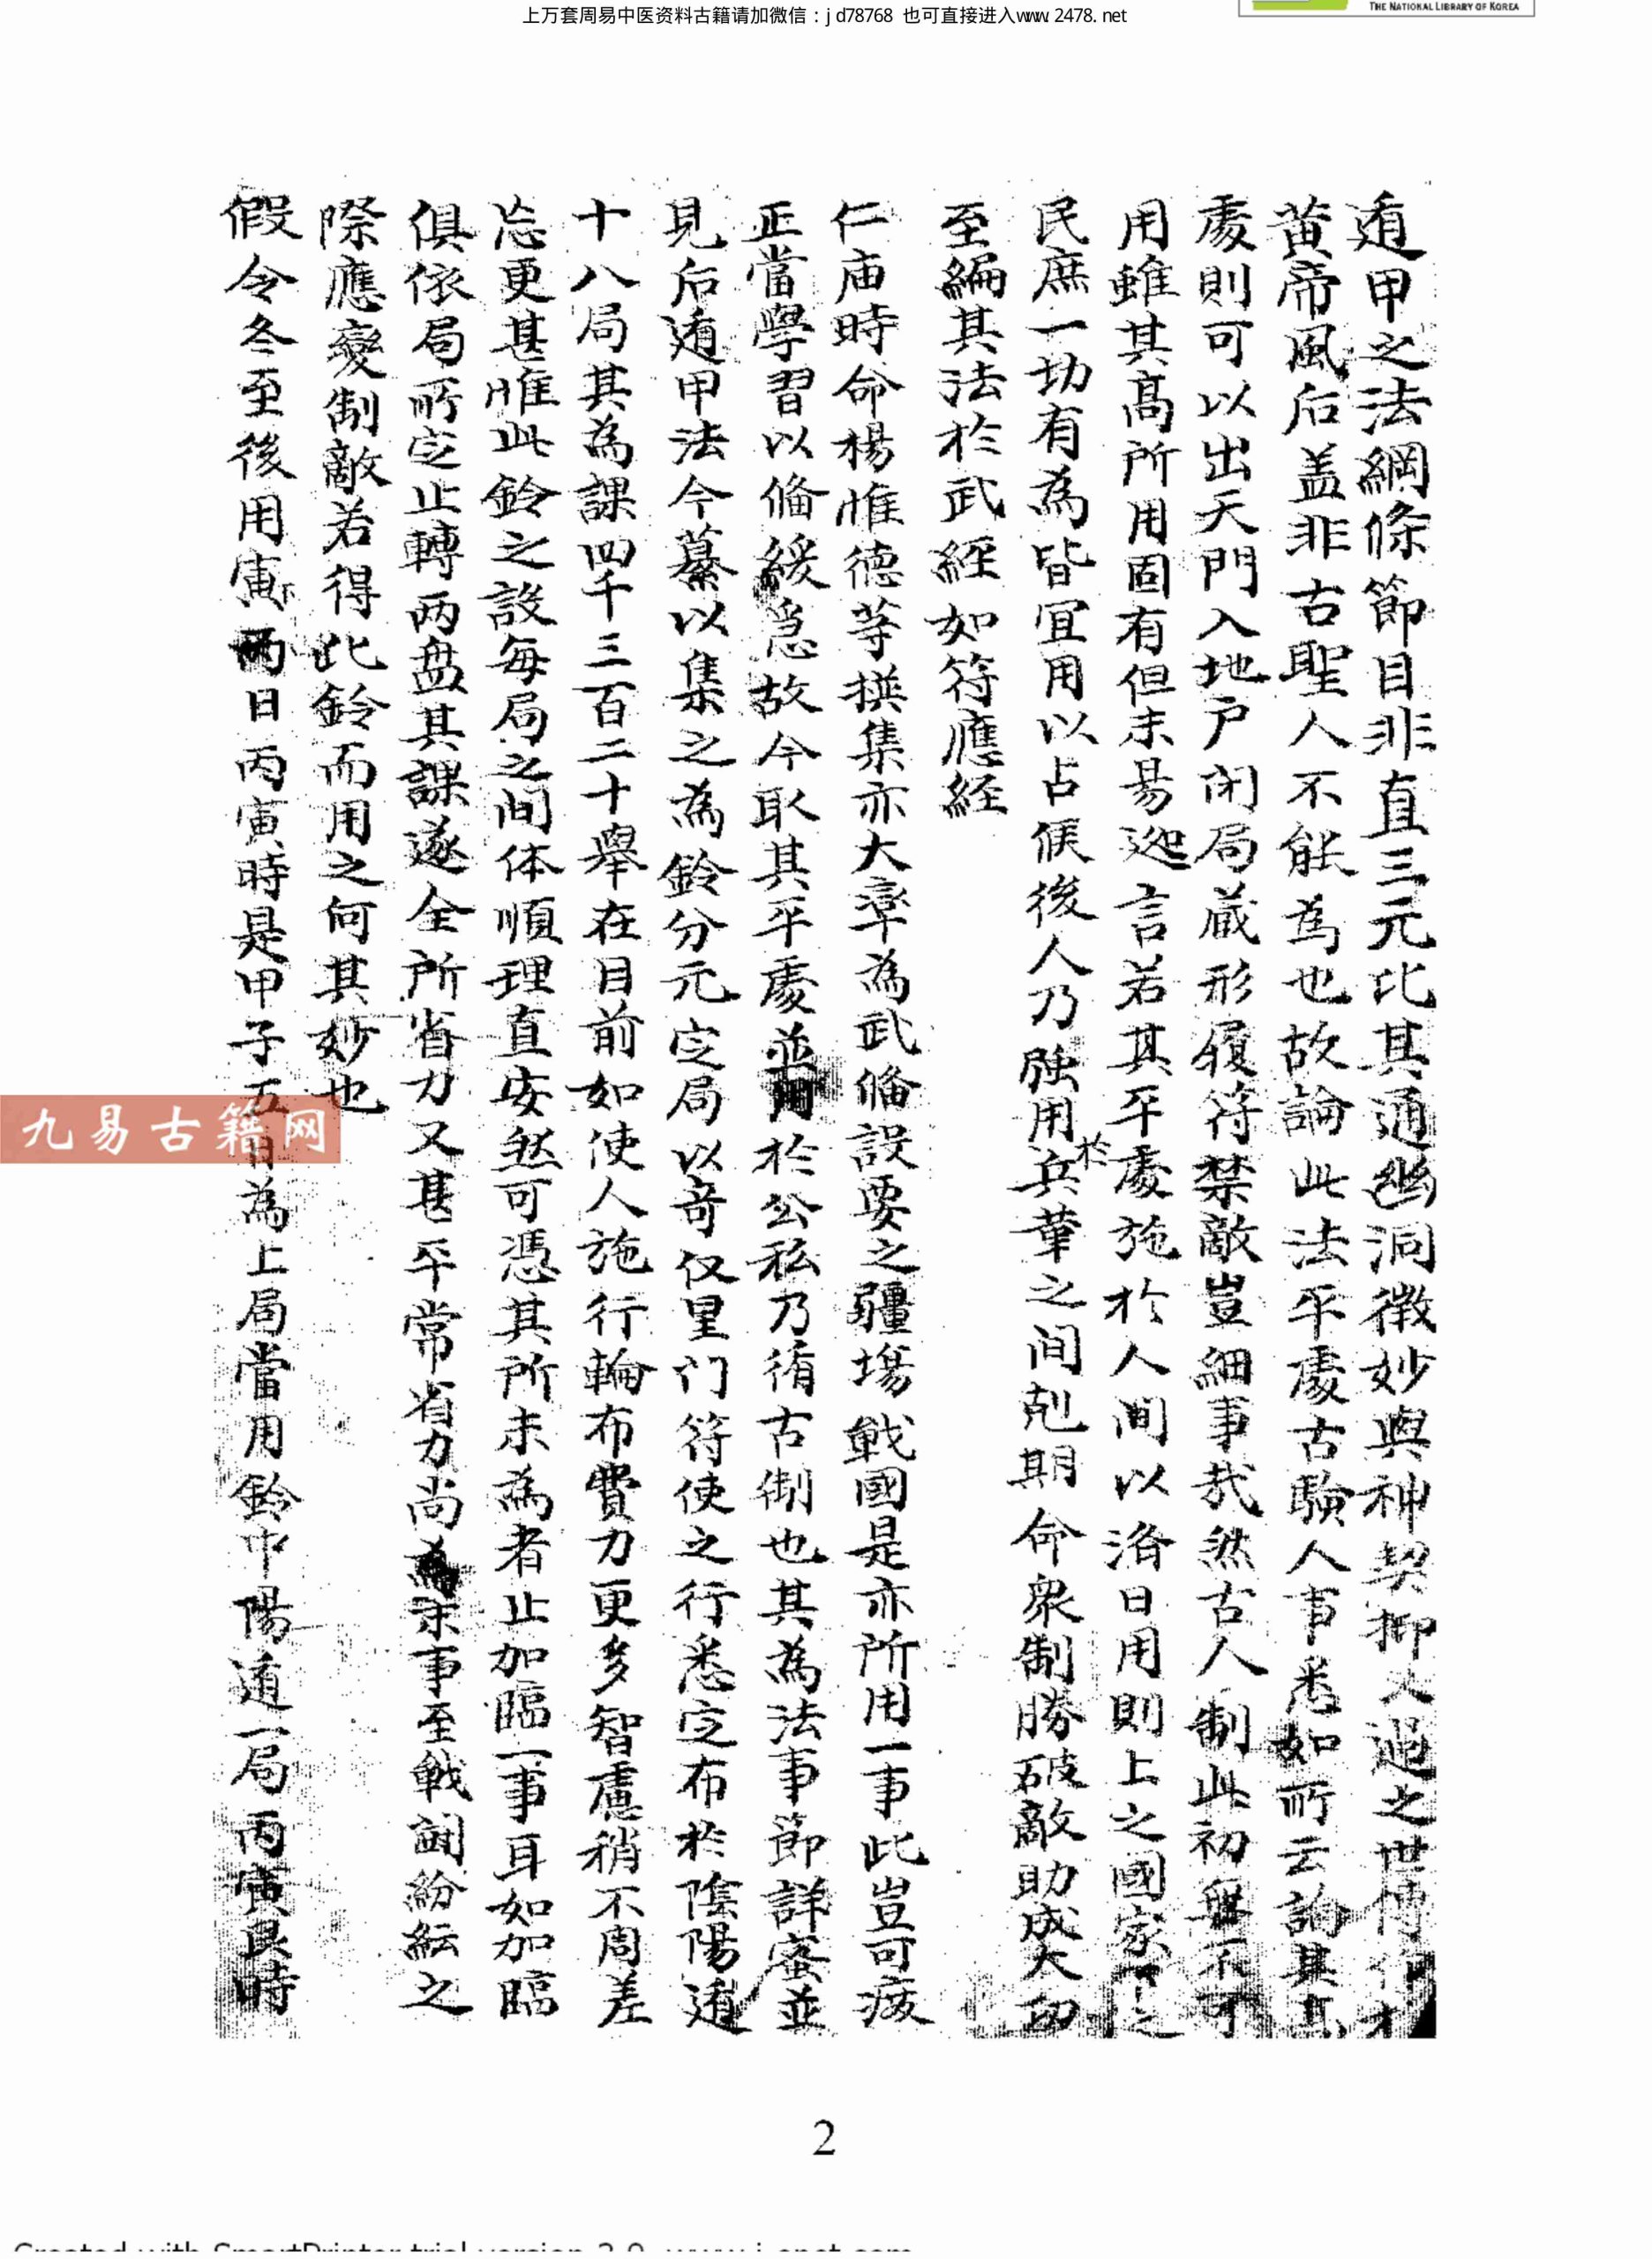 上万套周易中医资料古籍请加微信：jd78768 也可直接进入www.2478.net
THE NATIONAL LIBRARY OF KOREA
遁甲之法綱條節目非直三元比其通幽洞微妙與神契抑又過之世傳
黃帝風后盖非古聖人不能為也故論此法平處古驗人事悉如所云論其
處則可以出天門入地戶閉局蔵形履符禁敵豈細事㢤然古人制此初無不可
用雖其髙所用固有但未易𨑩言若其平處施於人間以洛日用則上之國家
民庶一切有為皆宜用以占候後人乃强用於兵革之间剋期命衆制勝破敵助成大功
至編其法於武經如符應経
仁庙時命楊惟德等撰集亦大率為武俻設要之疆場戰國是亦所用一事此豈可癈
正當學習以俻緩急故今取其平處並用於公私乃循古制也其為法事節詳宻並
見后遁甲法今纂以集之為鈴分元定局以竒仪里门符使之行悉定布於隂陽遁
十八局其為課四千三百二十舉在目前如使人施行輪布費力更多智慮稍不周差
忘更甚惟此鈴之設每局之间体順理直安然可憑其所未為者止加臨一事耳如加臨
俱依局所定止轉两盘其課遂全所省力又甚平常省力尚為末事至戰闘紛紜之
際應變制敵若得此鈴而用之何其妙也
假令冬至後用寅下两日丙寅時是甲子五日為上局當用鈴中陽遁一局丙寅艮時
九易古籍网
2
Created with SmartPrinter trial version 2.0 www.i-enet.com